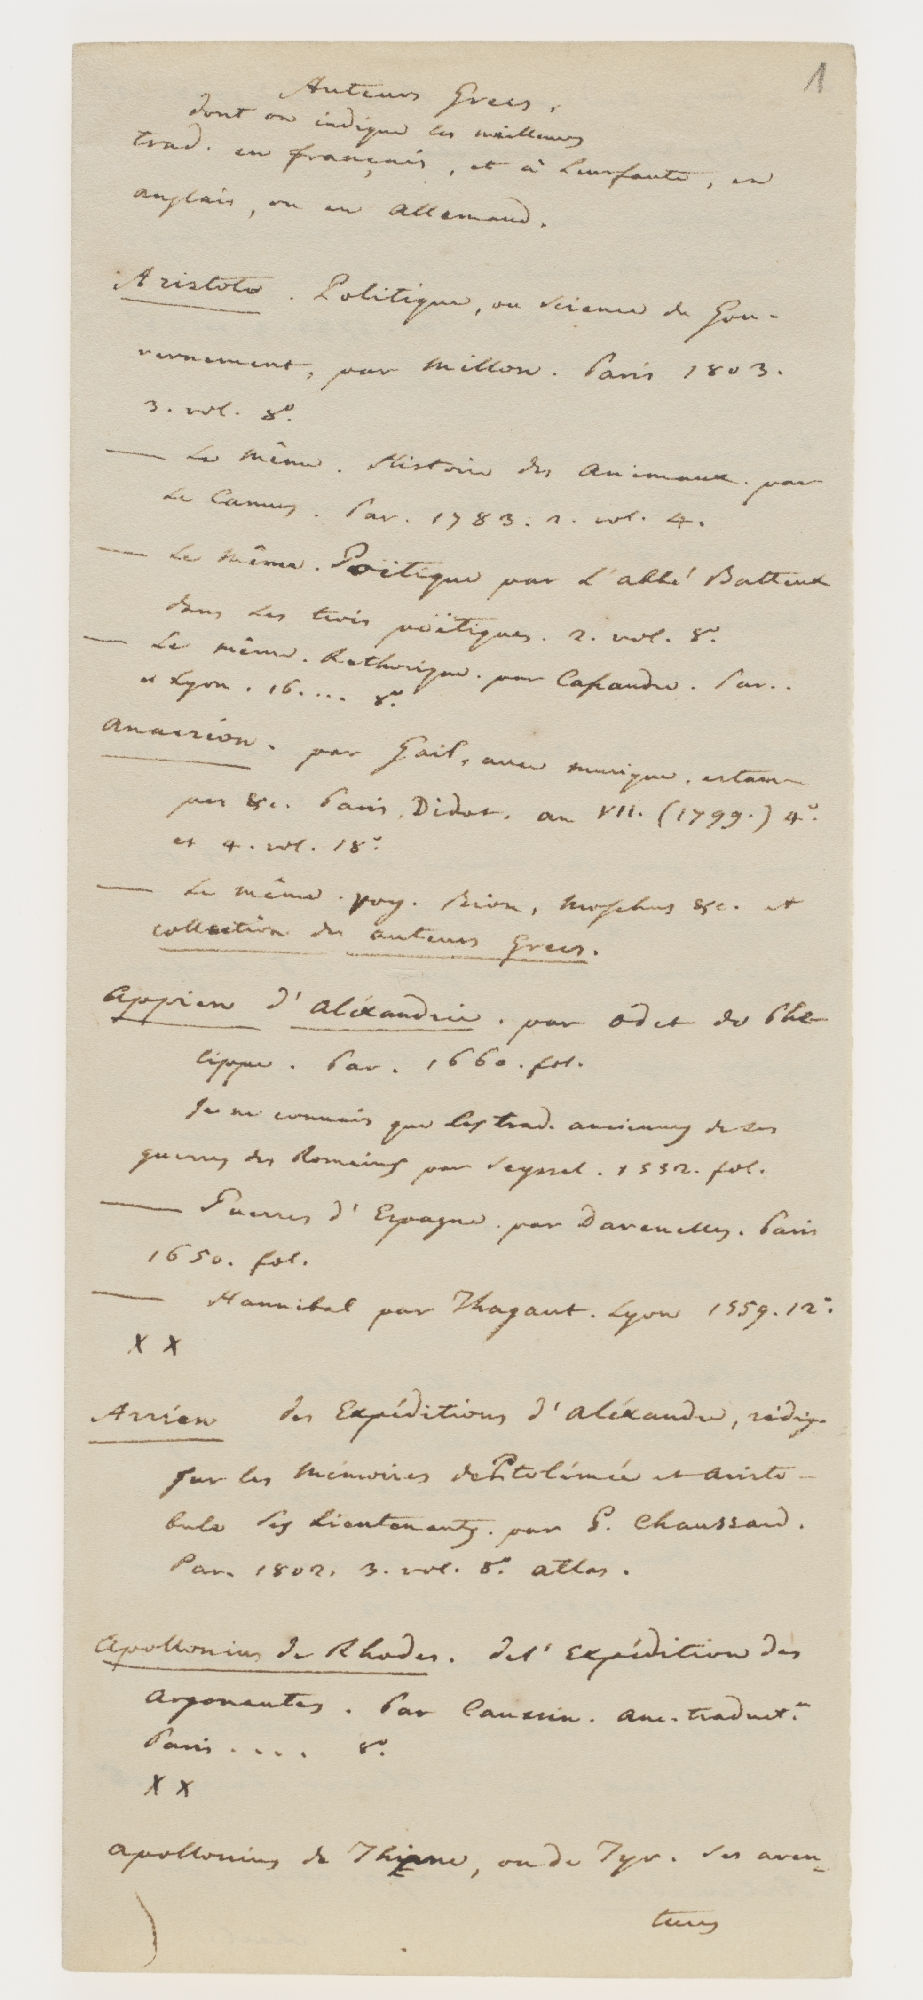 1
Auteurs Grecs,
dont on indique les meilleures
trad. en français, et à leur faute, en
anglais, ou en allemand.
Aristote. Politique, ou science du Gou-
vernement, par Millon. Paris 1803.
3. vol. 8º.
— Le même. Histoire des animaux. par
Le Camus. Par. 1783. 2. vol. 4.
— Le même. Poëtique par l'abbé Batteux
dans les trois poëtiques. 2. vol. 8º.
— Le même. Rethorique. par Cassandre. Par..
et Lyon. 16.... 8º.
Anacréon. par Gail, avec musique, estam
pes &c. Paris, Didot. an VII. (1799.) 4º.
et 4. vol. 18º.
— Le même. voy. Bion, Moschus &c. et
collection des auteurs Grecs.
Appien d'Aléxandrie. par Odet de Phi
lippe. Par. 1660. fol.
Je ne connais que les trad. anciennes de ses
guerres des Romains par Seyssel. 1552. fol.
— Guerres d'Espagne. par Davenelles. Paris
1650. fol.
— Hannibal par Thagaut. Lyon 1559. 12º.
X X
Arrien des Expéditions d'Aléxandre, rédig.
sur les Mémoires de Ptolémée et Aristo-
bule ses Lieutenants. par P. Chaussard.
Par. 1802. 3. vol. 8º. atlas.
Apollonius de Rhodes. de l'Expédition des
Argonautes. Par Caussin. anc. traduct.n
Paris.... 8º.
X X
Apollonius de Thiane, ou de Tyr. ses aven-
tures